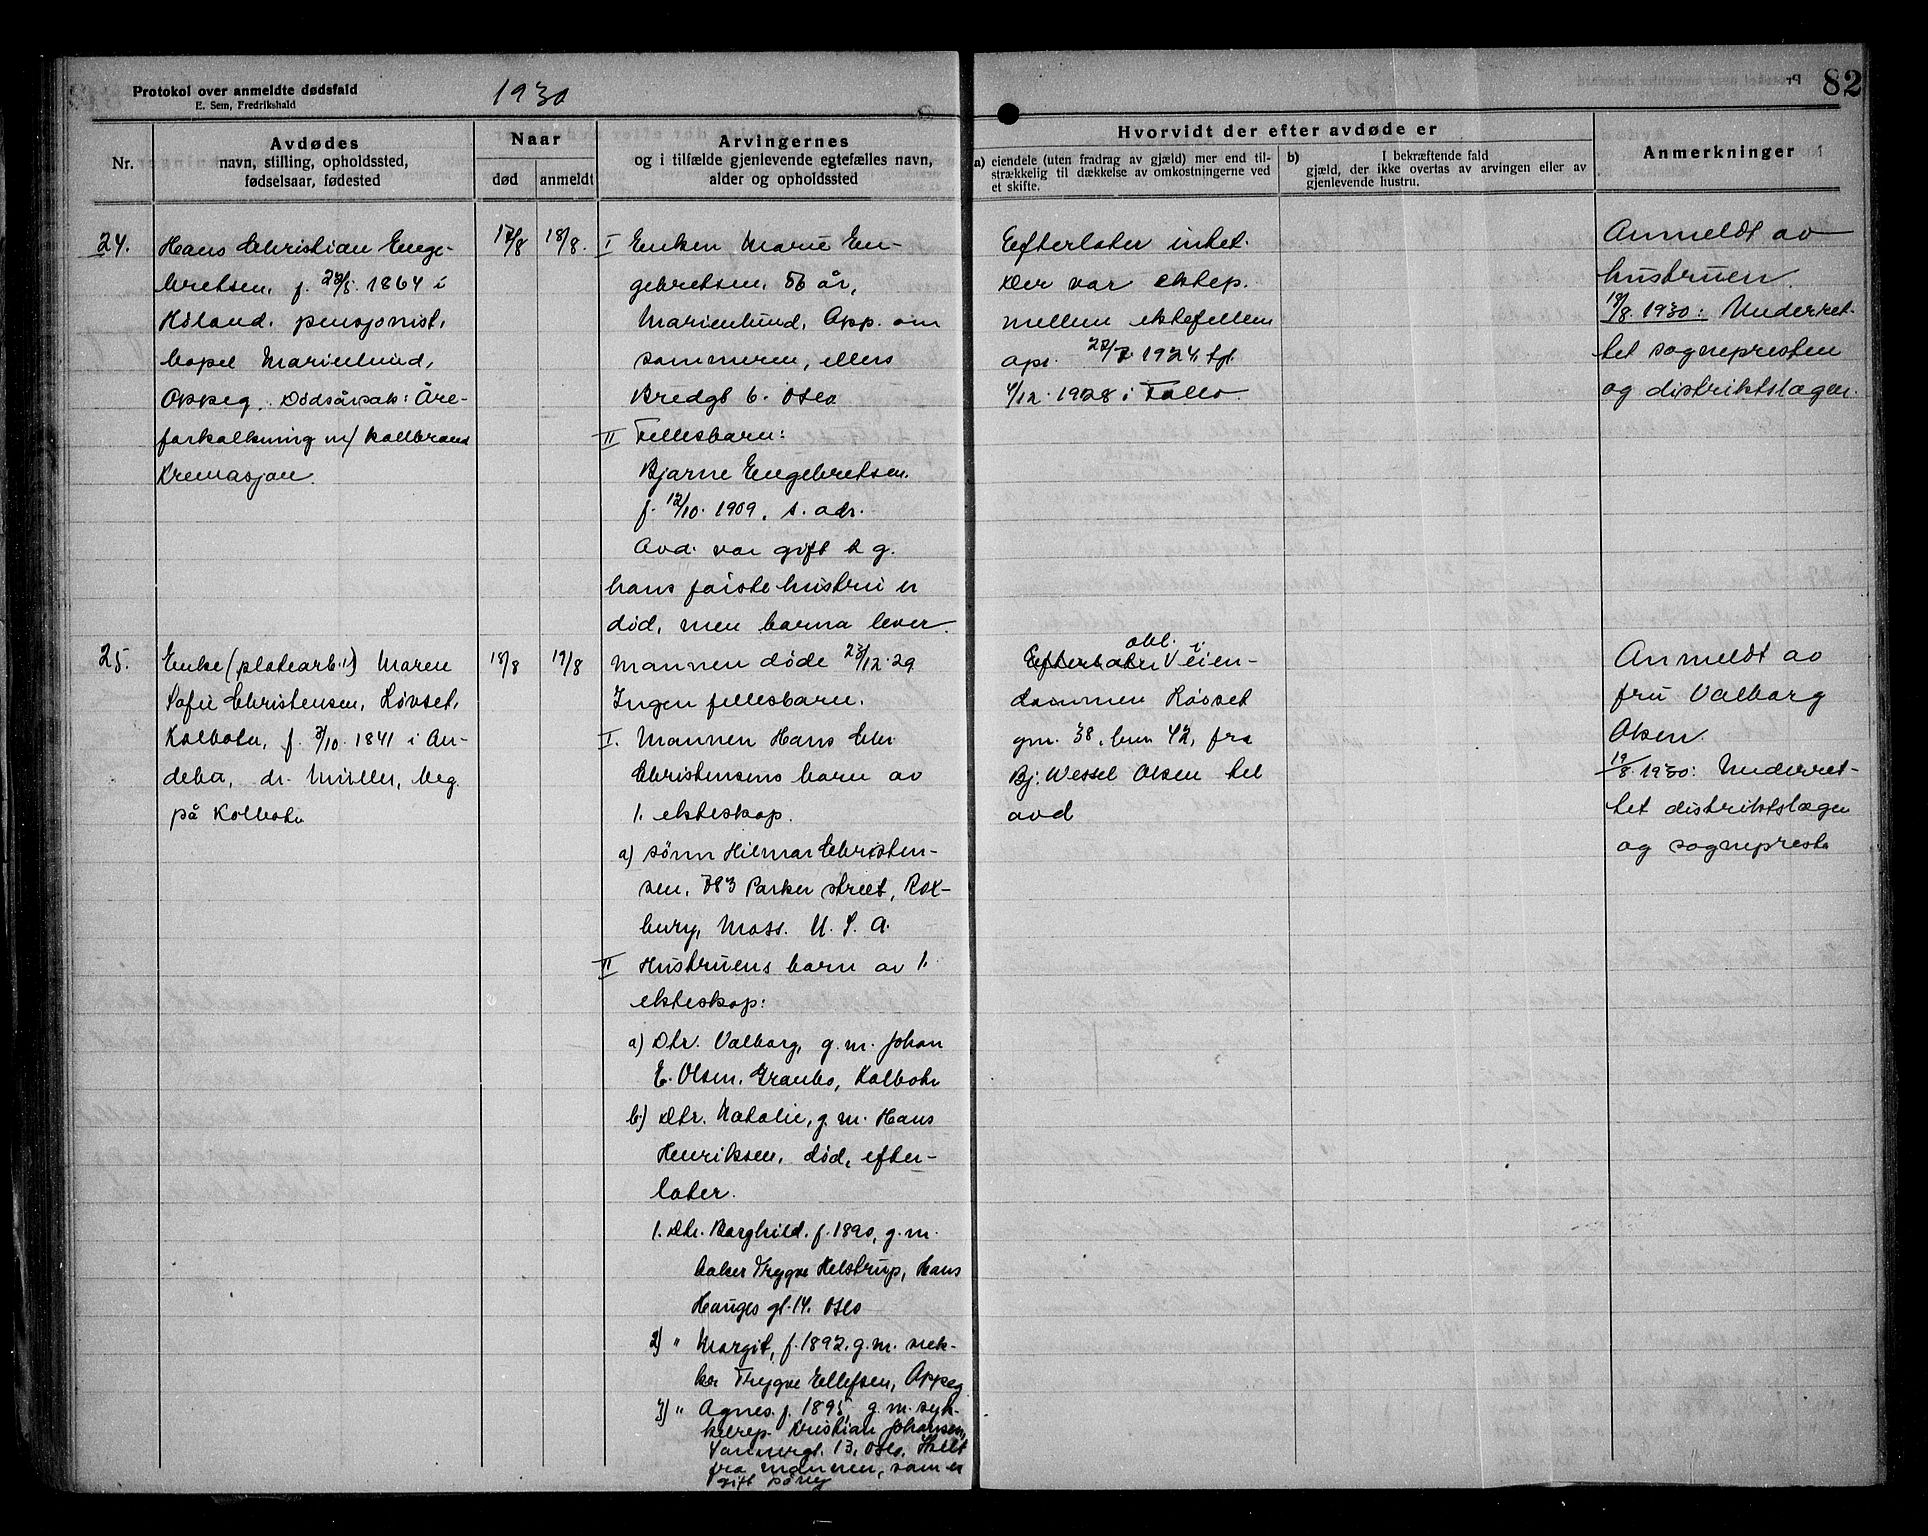 Protokol over anmeldte dødsfald
E. Sem, Fredrikshald
1930
82
Nr.
Avdødes
navn, stilling, opholdssted,
fødselsaar, fødested
Naar
død
anmeldt
Arvingernes
og i tilfælde gjenlevende egtefælles navn,
alder og opholdssted
Hvorvidt der efter avdøde er
a) eiendele (uten fradrag av gjæld) mer end til-
strækkelig til dækkelse av omkostningerne ved
et skifte.
b) I bekræftende fald
gjæld, der ikke overtas av arvingen eller av
gjenlevende hustru.
Anmerkninger
24.
Hans Christian Enge-
bretsen, f. 1864 i
Höland, pensjonist,
bopel Marienlund,
Oppeg. Dødsårsak: Åre-
forkalkning m/ kallbrand
Kremasjon.
17/8
18/8.
I Enken Marie En-
gebretsen, 56 år,
Marienlund, Opp. om
sommeren, ellers
Bredgt 6. Oslo
II Fellesbarn:
Bjarne Engebretsen.
f. 12/10. 1909, s. adr.
Avd. var gift 2 g.
hans første hustru er
død, men barna lever.
Efterlater intet.
Der var ektep.
mellem ektefellene
opr. 22/7. 1924. tgl.
4/12. 1928 i Follo
Anmeldt av
hustruen.
19/8. 1930: Underret-
tet sognepresten
og distriktslægen.
25.
Enke (platearb.) Maren
Sofie Christensen, Løvset,
Kolbotn, f. 3/10. 1841 i An-
debu, dr. Müller, beg.
på Kolbotn
18/8
19/8
Mannen døde 23/12. 29
Ingen fellesbarn.
I. Mannen Hans Chr
Christensens barn av
1. ekteskap.
a) sønn Hilmar Christen-
sen, 383 Parker street, Rox-
bury, Mass. U. S. A.
II Hustruens barn av 1.
ekteskap:
a) Dtr. Valborg, g. m. Johan
E. Olsen, Granbo, Kolbotn
b) Dtr. Natalie, g. m. Hans
Henriksen, død, efter-
later.
1. Dtr. Borghild. f. 1890, g. m.
baker Trygve Helstrup, Hans
Hauges gt. 14. Oslo
2) " Margit, f. 1892. g. m. snek-
ker Trygve Ellefsen, Oppeg
3) " Agnes f. 1895 g. m. syk-
kelrep. Kristian Johansen,
Sannergt. 13, Oslo. Skilt
fra mannen, som er
gift påny
obl. i
Efterlater Veien-
dommen Løvset
gnr. 38, bnr. 42, fra
Bj. Wessel Olsen til
avd
Anmeldt av
fru Valborg
Olsen.
19/8. 1930: Underret-
tet distriktslægen
og sogneprest